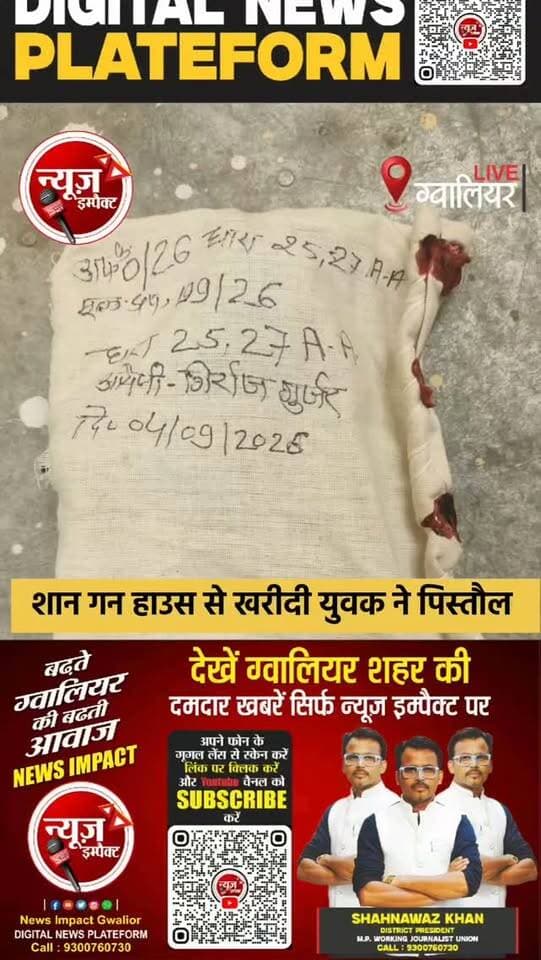 DIGITAL NEWS
PLATEFORM
न्यूज़
इम्पैक्ट
LIVE
ग्वालियर
0/26 धारा 25,27 A-A
09/26
धारा 25,27 A-A
आरोपी - गिर्राज गुर्जर
दि० 04/09/2026
शान गन हाउस से खरीदी युवक ने पिस्तौल
बढ़ते
ग्वालियर
की बढती
आवाज
NEWS IMPACT
न्यूज़
इम्पैक्ट
News Impact Gwalior
DIGITAL NEWS PLATEFORM
Call : 9300760730
देखें ग्वालियर शहर की
दमदार खबरें सिर्फ न्यूज़ इम्पैक्ट पर
अपने फोन के
गूगल लेंस से स्केन करें
लिंक पर क्लिक करें
और Youtube चैनल को
SUBSCRIBE
करें
SHAHNAWAZ KHAN
DISTRICT PRESIDENT
M.P. WORKING JOURNALIST UNION
CALL : 9300760730